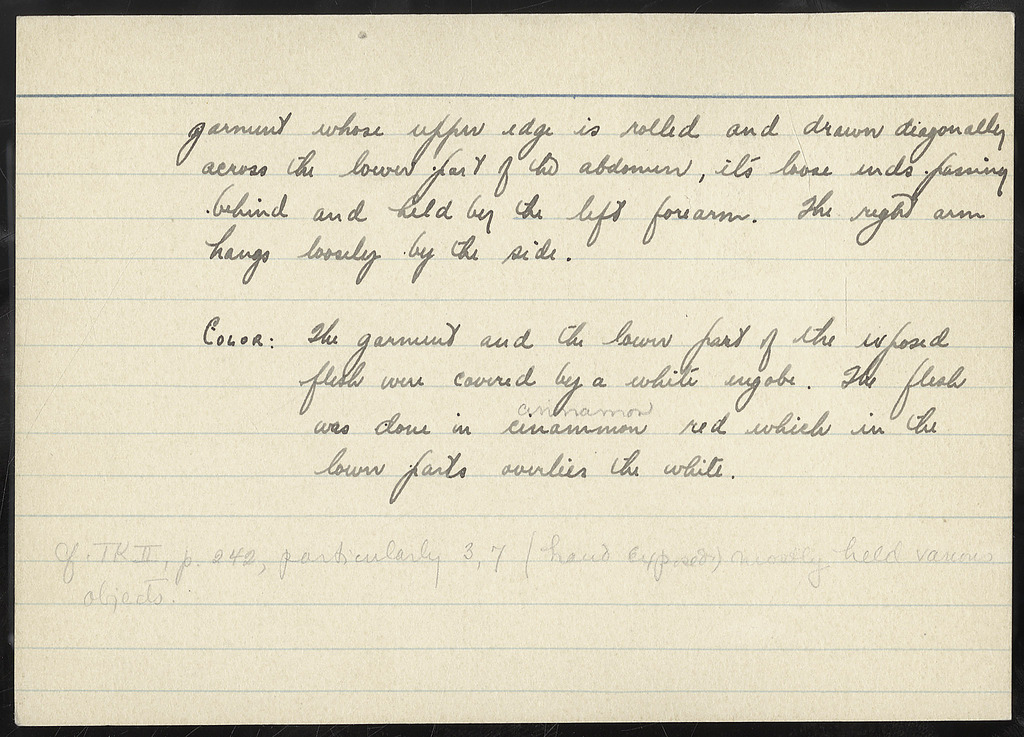 garment whose upper edge is rolled and drawn diagonally
across the lower part of the abdomen, its loose ends passing
behind and held by the left forearm. The right arm
hangs loosely by the side.
Color: The garment and the lower part of the exposed
flesh were covered by a white engobe. The flesh
cinnamon
was done in cinammon red which in the
lower parts overlies the white.
Cf. TK II, p. 242, particularly 3, 7 (hand exposed) mostly held various
objects.